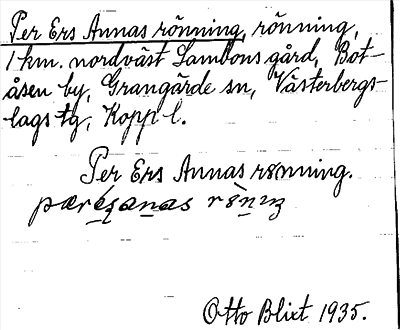 Per Ers Annas rönning, rönning,
1 km. nordväst Lambons gård, Bot-
åsen by, Grangärde sn, Västerbergs-
lags tg, Kopp l.
Per Ers Annas rönning.
Otto Blixt 1935.